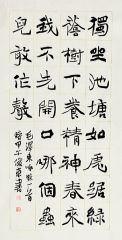 獨坐池塘如虎踞綠
蔭樹下養精神春來
我不先開口哪個蟲
兒敢作聲
毛澤東咏蛙一首
甲午書